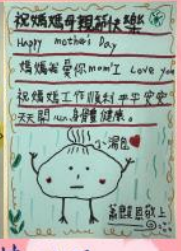 祝媽媽母親節快樂
Happy mother's Day
媽媽我愛你mom'I Love you
祝媽媽工作順利平平安安
天天開心,身體健康。
小湯包
敬上